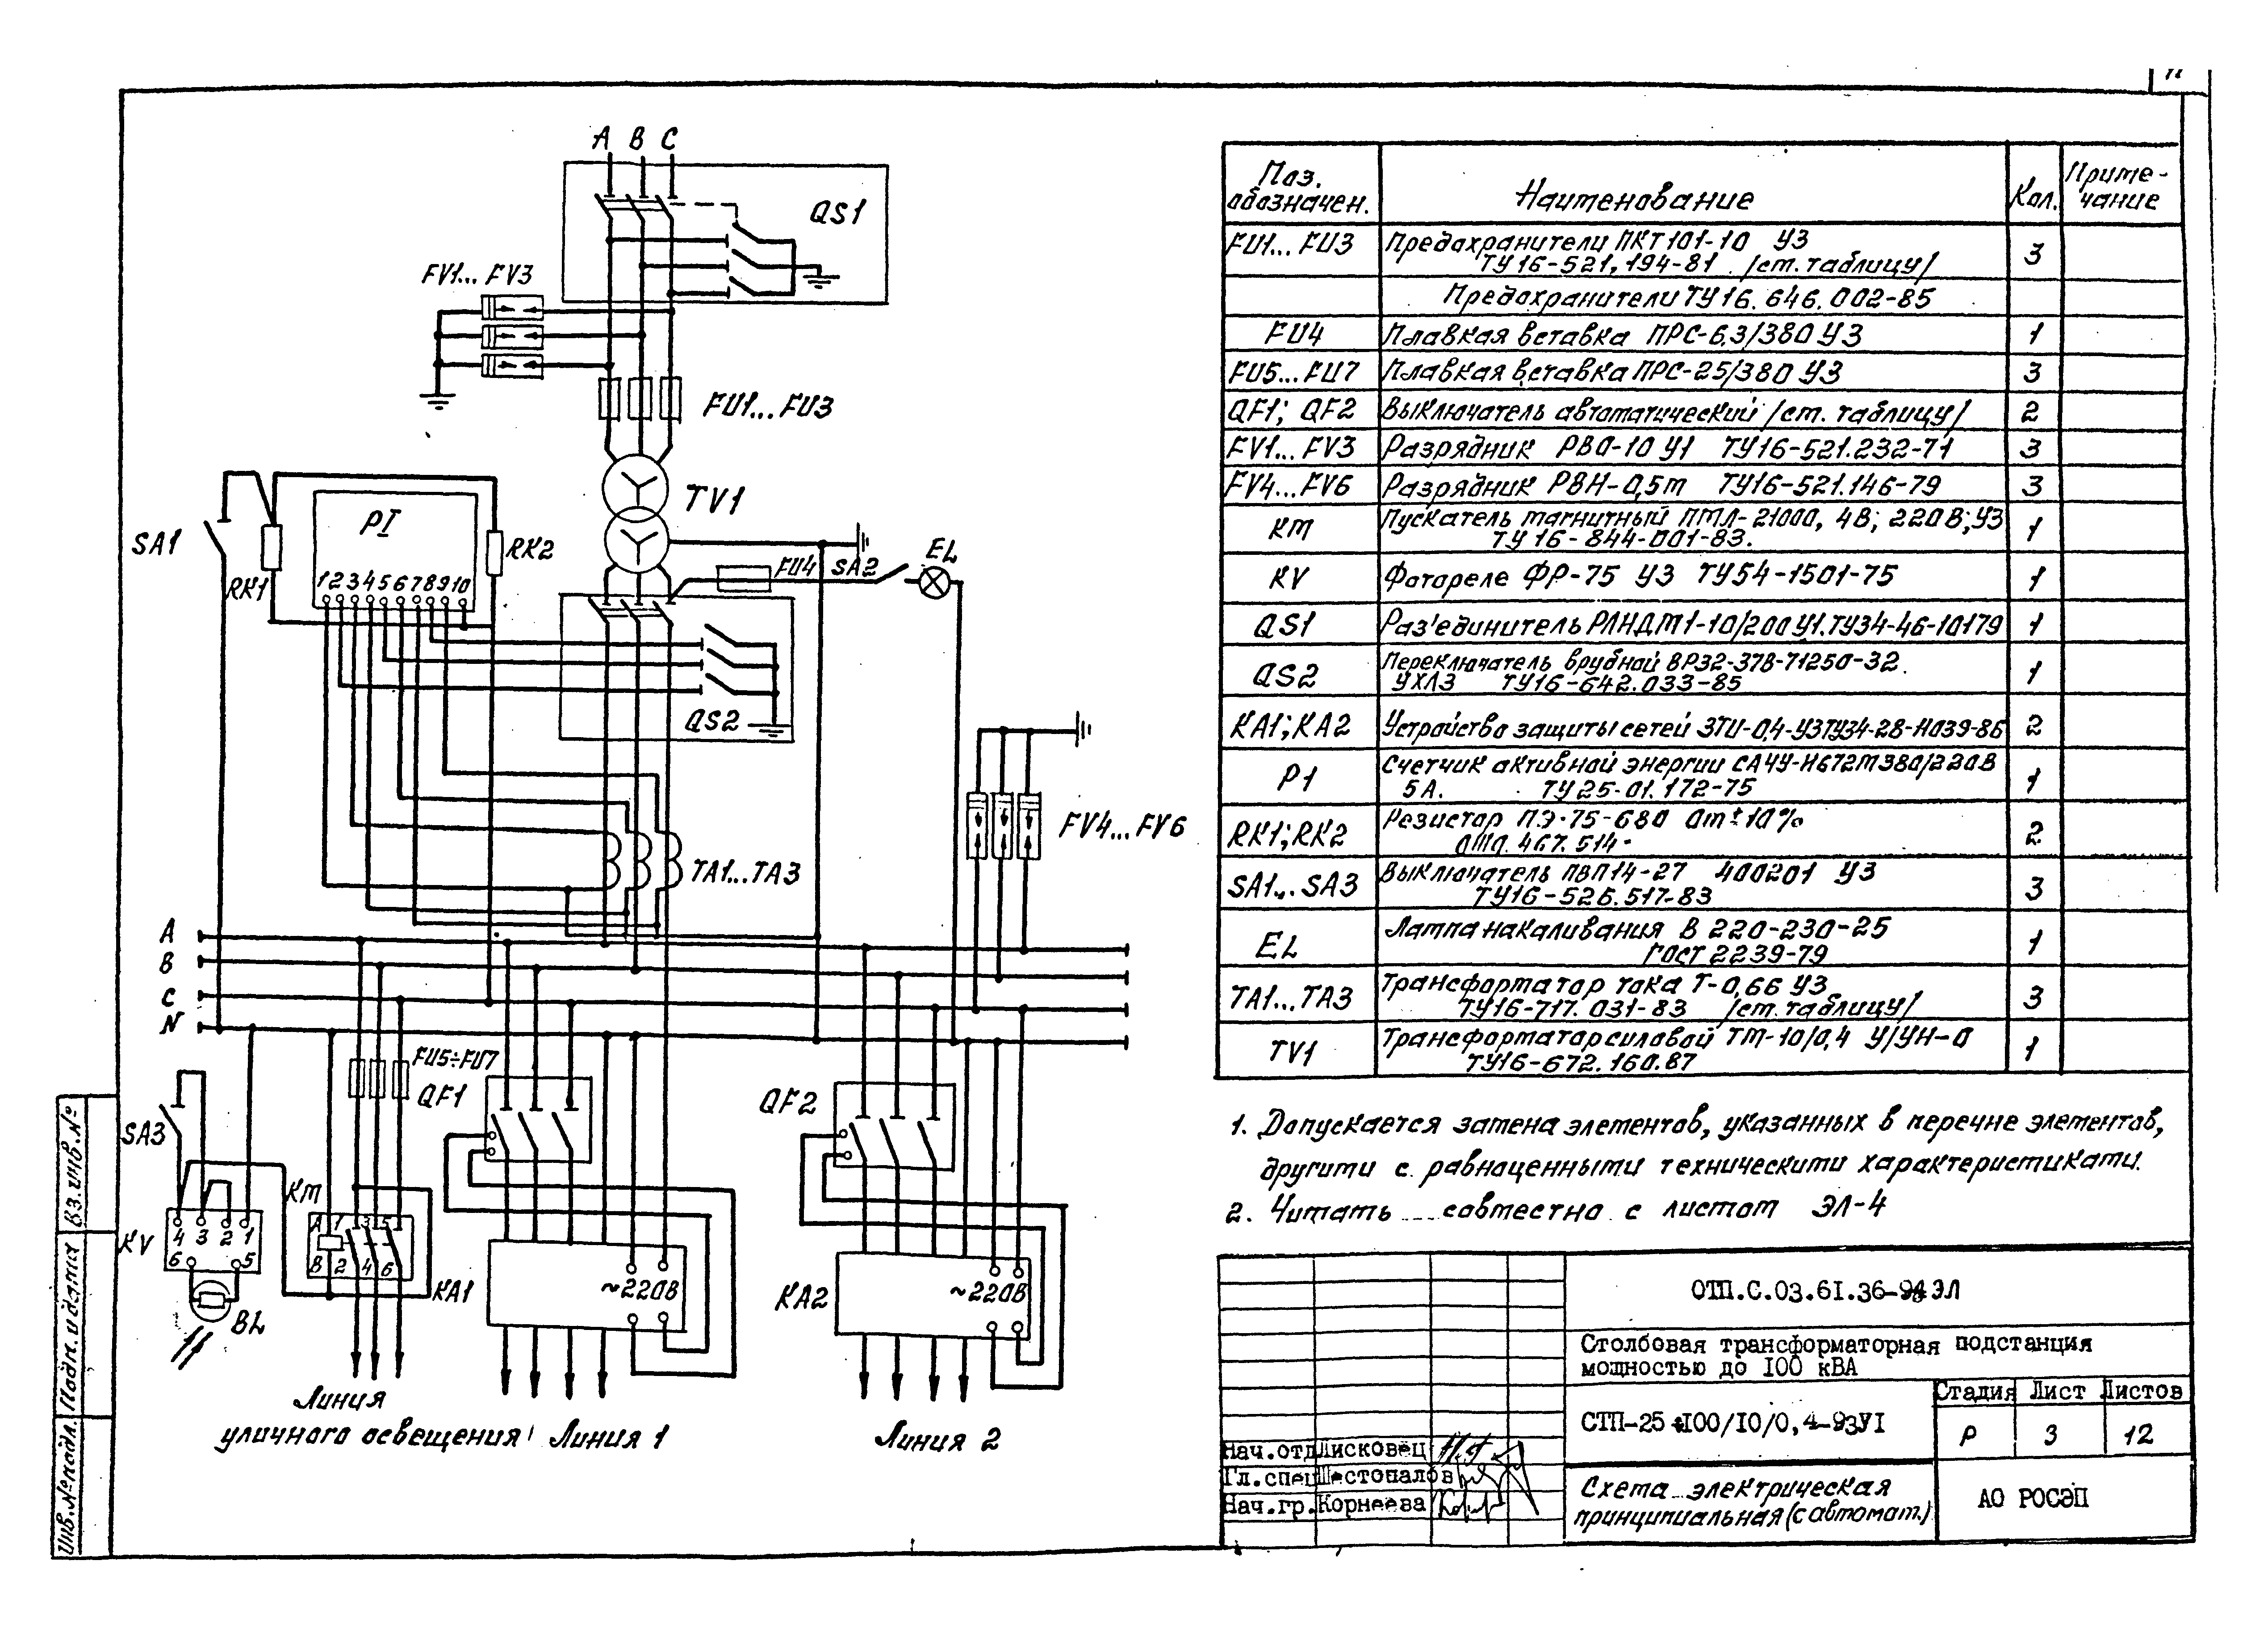 11
A B C
QS1
FV1... FV3
FU1... FU3
TV1
SA1
RK1
PI
RK2
1 2 3 4 5 6 7 8 9 10
FU4
SA2
EL
QS2
TA1...TA3
FV4... FV6
A
B
C
N
FU5÷FU7
QF1
QF2
SA3
KM
KV
4 3 2 1
6 5
A 1 3 5
B 2 4 6
BL
KA1
~220В
KA2
~220В
Линия
уличного освещения
Линия 1
Линия 2
Поз. обозначен. Наименование Кол. Приме-чание
FU1... FU3 Предохранители ПКТ101-10 У3 3
ТУ16-521.194-81 /см. таблицу/
Предохранители ТУ16.646.002-85
FU4 Плавкая вставка ПРС-6,3/380 У3 1
FU5... FU7 Плавкая вставка ПРС-25/380 У3 3
QF1; QF2 Выключатель автоматический /см. таблицу/ 2
FV1... FV3 Разрядник РВО-10 У1 ТУ16-521.232-71 3
FV4... FV6 Разрядник РВН-0,5м ТУ16-521.146-79 3
KM Пускатель магнитный ПМЛ-21000, 4В; 220В; У3 1
ТУ16-844-001-83.
KV Фотореле ФР-75 У3 ТУ54-1501-75 1
QS1 Раз'единитель РЛНДМ1-10/200 У1.ТУ34-46-10179 1
QS2 Переключатель врубной ВР32-37В-71250-32 1
УХЛ3 ТУ16-642.033-85
KA1; KA2 Устройство защиты сетей ЗТИ-0,4-У3ТУ34-28-11039-86 2
P1 Счетчик активной энергии СА4У-И672М380/220В 1
5А. ТУ25-01.172-75
RK1; RK2 Резистор ПЭ-75-680 Ом±10% 2
467.514
SA1... SA3 Выключатель ПВП14-27 400201 У3 3
ТУ16-526.517-83
EL Лампа накаливания В 220-230-25 1
ГОСТ 2239-79
TA1... TA3 Трансформатор тока Т-0,66 У3 3
ТУ16-717.031-83 /см. таблицу/
TV1 Трансформатор силовой ТМ-10/0,4 У/УН-0 1
ТУ16-672.160.87
1. Допускается замена элементов, указанных в перечне элементов,
другими с равноценными техническими характеристиками.
2. Читать совместно с листом ЭЛ-4
ОТП.С.03.61.36-94 ЭЛ
Столбовая трансформаторная подстанция
мощностью до 100 кВА
СТП-25÷100/10/0,4-93У1
Стадия Лист Листов
Р 3 12
Нач.отд Лисковец
Гл.спец Шестопалов
Нач.гр. Корнеева
Схема электрическая
принципиальная (с автомат.)
АО РОСЭП
Вз.инв.№
Подп. и дата
Инв.№ подл.